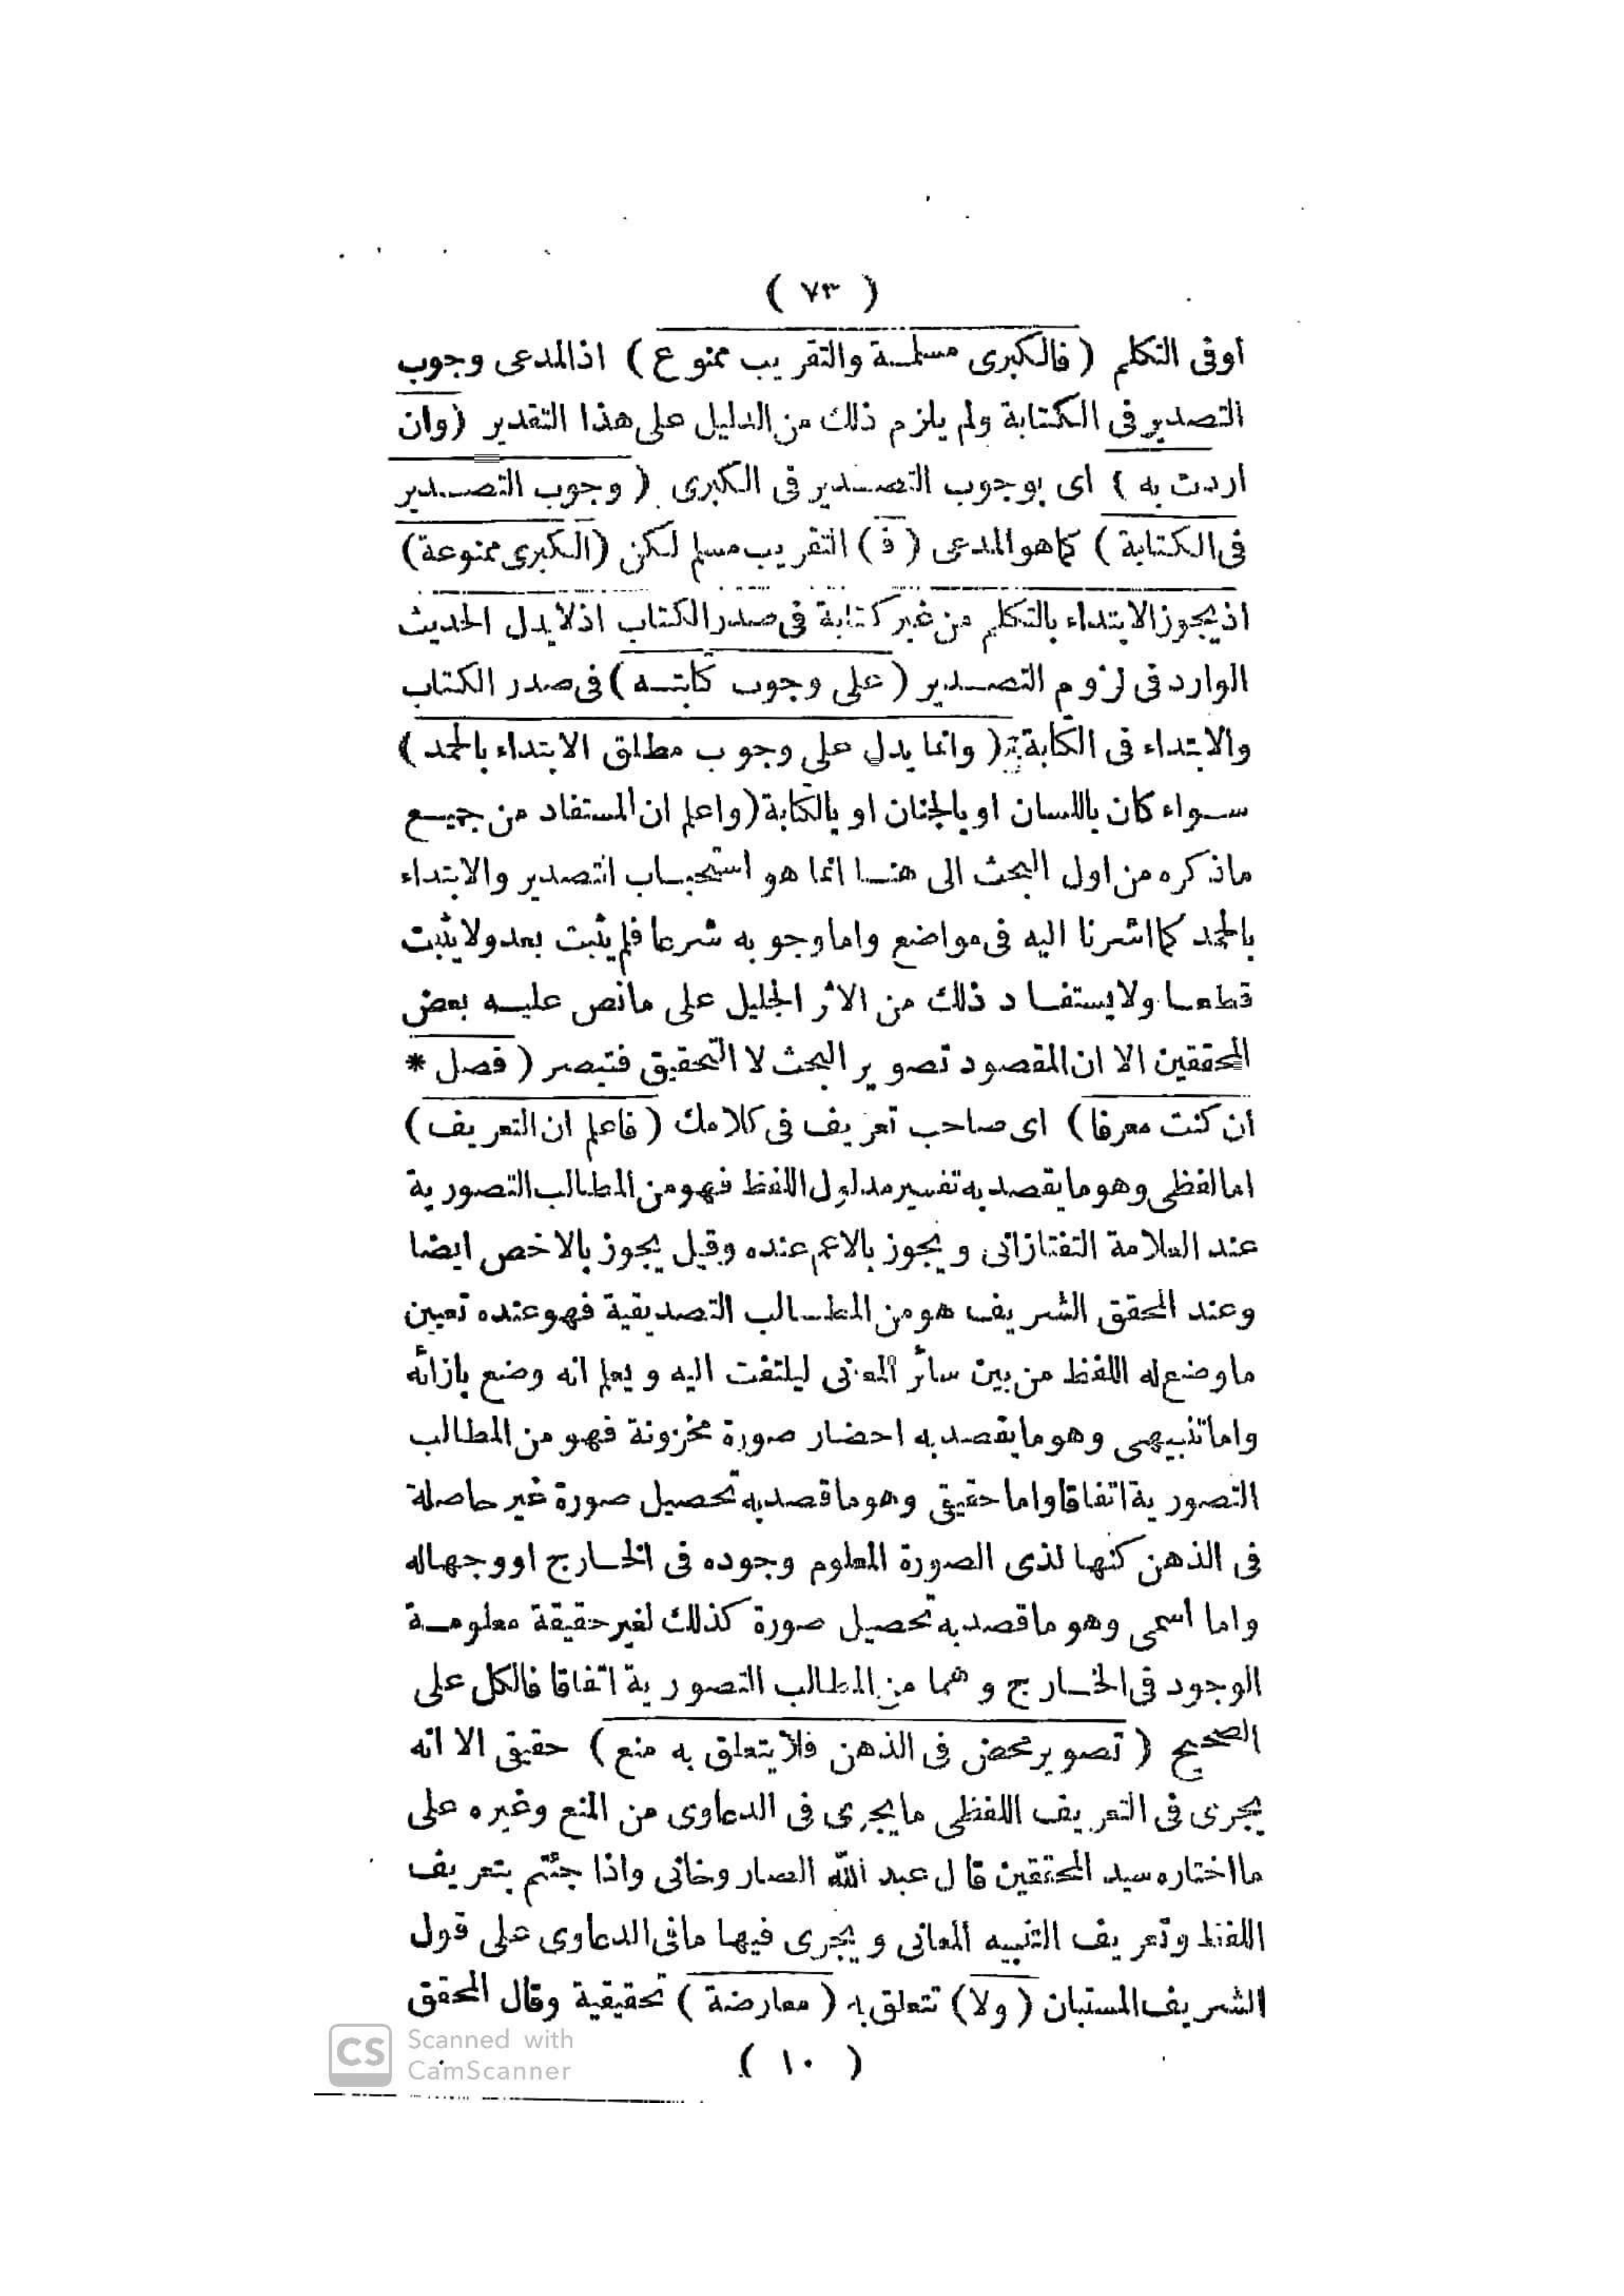 ( ٧٣ )
أوفى التكلم ( فالكبرى مسلمة والتقريب ممنوع ) اذ المدعى وجوب
التصدير فى الكتابة ولم يلزم ذلك من الدليل على هذا التقدير ( وان
اردت به ) اى بوجوب التصدير فى الكبرى ( وجوب التصدير
فى الكتابة ) كما هو المدعى ( ف ) التقريب مسلم لكن ( الكبرى ممنوعة )
اذ يجوز الابتداء بالتكلم من غير كتابة فى صدر الكتاب اذ لا يدل الحديث
الوارد فى لزوم التصدير ( على وجوب كتابته ) فى صدر الكتاب
والابتداء فى الكتابة ( وانما يدل على وجوب مطلق الابتداء بالحمد )
سواء كان باللسان او بالجنان او بالكتابة ( واعلم ان المستفاد من جميع
ماذكره من اول البحث الى هنا انما هو استحباب التصدير والابتداء
بالحمد كما اشرنا اليه فى مواضع واما وجوبه شرعا فلم يثبت بعد ولا يثبت
قطعا ولا يستفاد ذلك من الاثر الجليل على مانص عليه بعض
المحققين الا ان المقصود تصوير البحث لا التحقيق فتبصر ( فصل *
ان كنت معرفا ) اى صاحب تعريف فى كلامك ( فاعلم ان التعريف )
اما لفظى وهو ما يقصد به تفسير مدلول اللفظ فهو من المطالب التصورية
عند العلامة التفتازانى ويجوز بالاعم عنده وقيل يجوز بالاخص ايضا
وعند المحقق الشريف هو من المطالب التصديقية فهو عنده تعيين
ما وضع له اللفظ من بين سائر المعانى ليلتفت اليه ويعلم انه وضع بازائه
واما تنبيهى وهو ما يقصد به احضار صورة مخزونة فهو من المطالب
التصورية اتفاقا واما حقيقى وهو ما قصد به تحصيل صورة غير حاصلة
فى الذهن كنها لذى الصورة المعلوم وجوده فى الخارج او وجها له
واما اسمى وهو ما قصد به تحصيل صورة كذلك لغير حقيقة معلومة
الوجود فى الخارج وهما من المطالب التصورية اتفاقا فالكل على
الصحيح ( تصوير محض فى الذهن فلا يتعلق به منع ) حقيقى الا انه
يجرى فى التعريف اللفظى ما يجرى فى الدعاوى من المنع وغيره على
ما اختاره سيد المحققين قال عبد الله الصاروخانى واذا جئتم بتعريف
اللفظ وتعريف التنبيه المعانى ويجرى فيها مافى الدعاوى على قول
الشريف المستبان ( ولا ) تتعلق به ( معارضة ) تحقيقية وقال المحقق
( ١٠ )
CS Scanned with
CamScanner